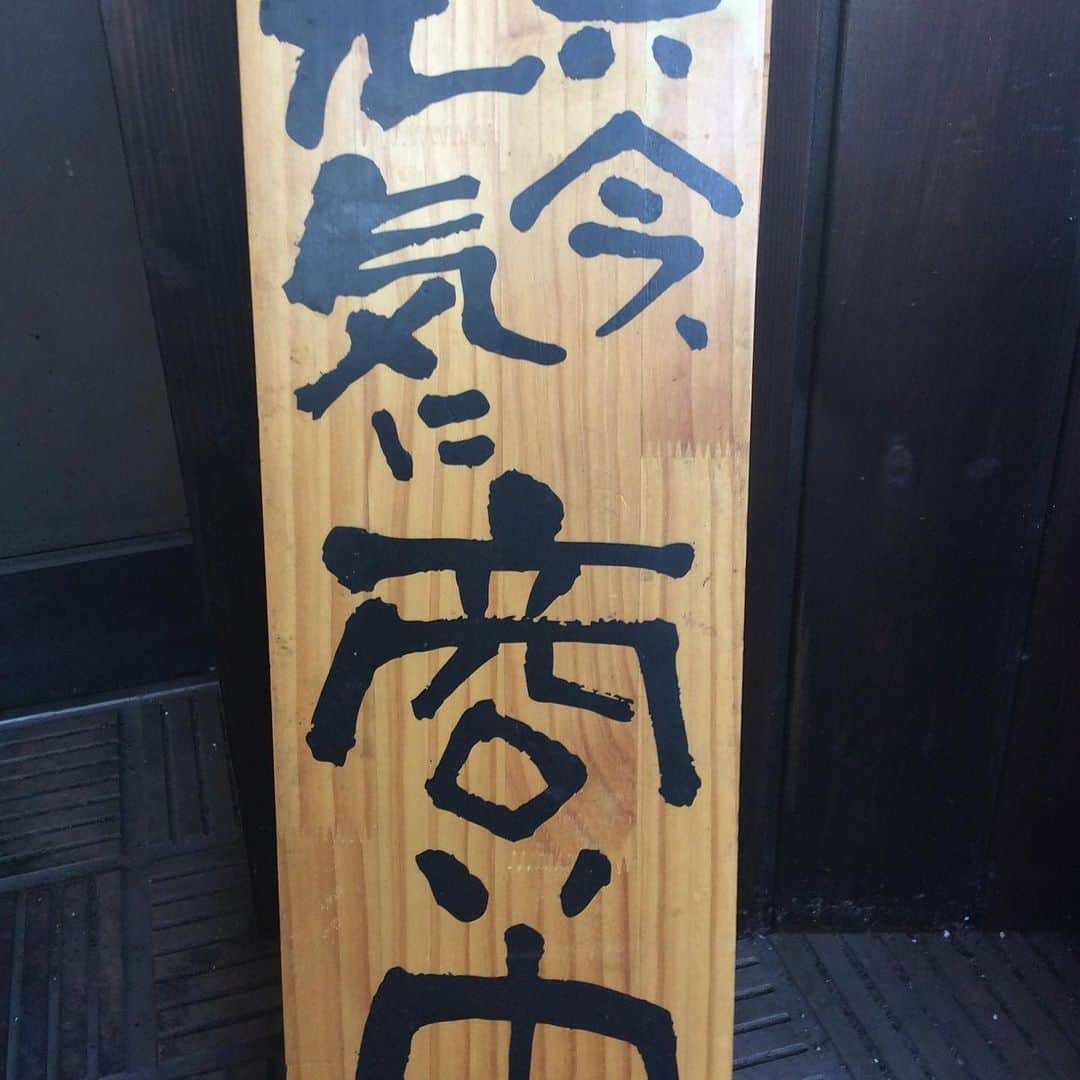 只今、
元気に商い中